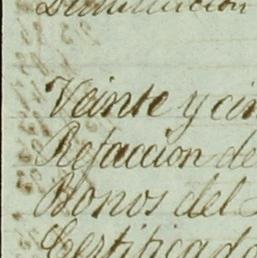 Veinte y cin
Refaccion de
Bonos del
Certificado